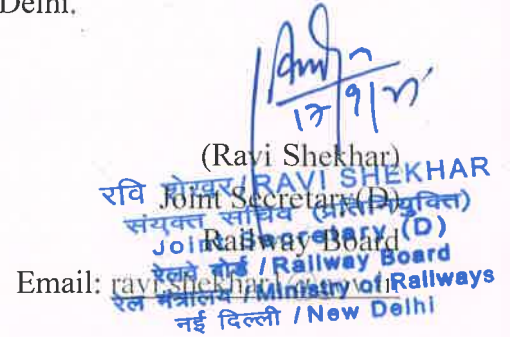 Delhi.
17/9/
(Ravi Shekhar)
Joint Secretary(D)
Railway Board
Email:
रवि शेखर/RAVI SHEKHAR
संयुक्त सचिव (प्रतिनियुक्ति)
Joint Secretary (D)
रेलवे बोर्ड / Railway Board
रेल मंत्रालय / Ministry of Railways
नई दिल्ली / New Delhi